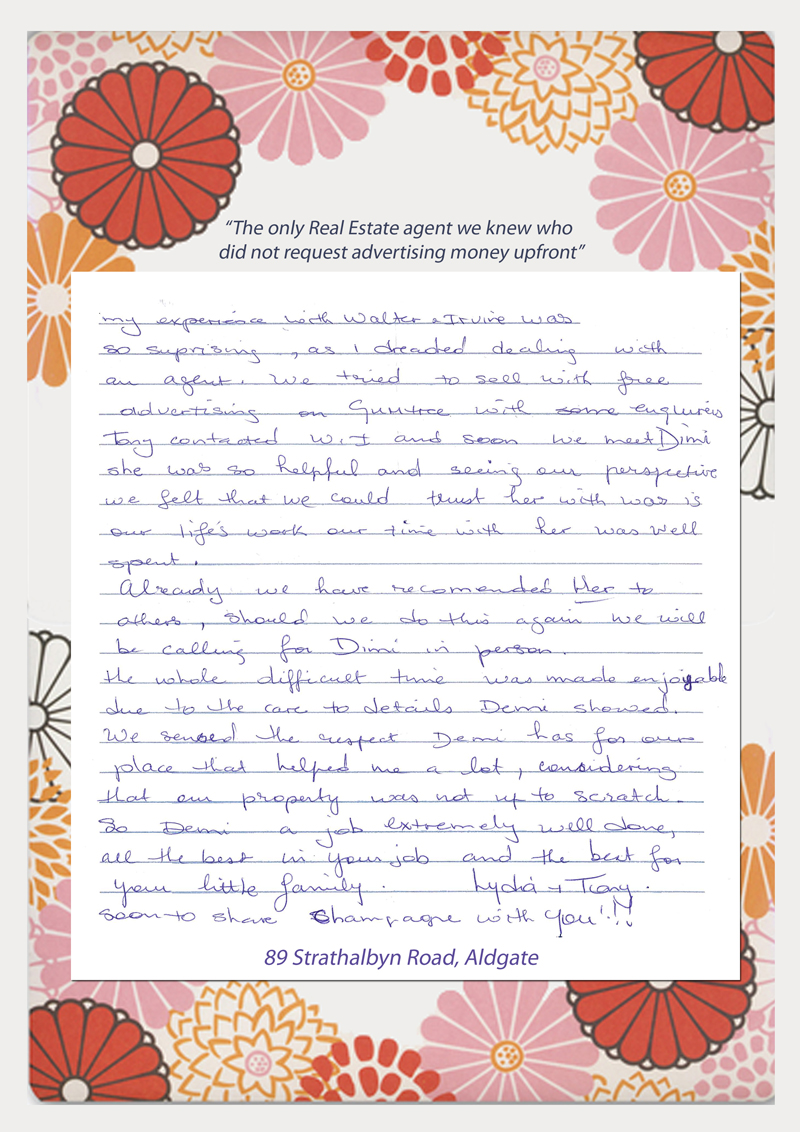 “The only Real Estate agent we knew who
did not request advertising money upfront”
my experience with Walter & Irvine was
so suprising, as I dreaded dealing with
an agent. We tried to sell with free
advertising on Gumtree with some enquires
Tony contacted W.I and soon we meet Dimi
she was so helpful and seeing our perspective
we felt that we could trust her with was is
our life's work our time with her was well
spent.
Already we have recomended Her to
others, should we do this again we will
be calling for Dimi in person.
the whole difficult time was made enjoyable
due to the care to details Demi showed.
We sensed the respect Demi has for our
place that helped me a lot, considering
that our property was not up to scratch.
So Demi a job extremely well done,
all the best in your job and the best for
your little family. Lydia + Tony.
soon to share Champagne with you!!!
89 Strathalbyn Road, Aldgate